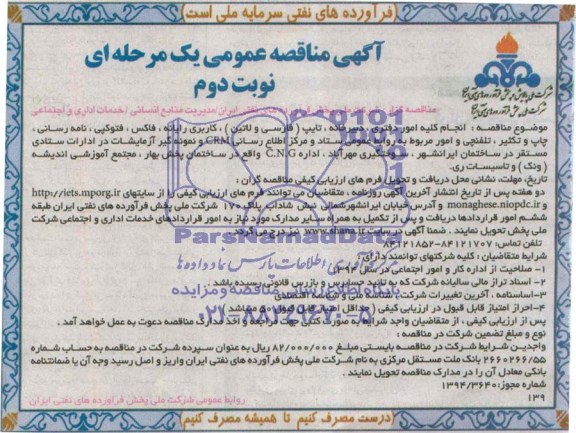 فرآورده های نفتی سرمایه ملی است
آگهی مناقصه عمومی یک مرحله ای
نوبت دوم
مناقصه گزار: شرکت ملی پخش فرآورده های نفتی ایران/مدیریت منابع انسانی/خدمات اداری و اجتماعی
موضوع مناقصه : انجام کلیه امور دفتری ، دبیرخانه ، تایپ ( فارسی و لاتین ) ، کاربری رایانه ، فاکس ، فتوکپی ، نامه رسانی ،
چاپ و تکثیر ، تلفنچی و امور مربوط به روابط عمومی ستاد و مرکز اطلاع رسانی CRM و نمونه گیر آزمایشات در ادارات ستادی
مستقر در ساختمان ایرانشهر ، سوختگیری مهرآباد ، اداره C.N.G واقع در ساختمان پخش بهار ، مجتمع آموزشی اندیشه
( ونک ) و تاسیسات ری.
تاریخ، مهلت، نشانی محل دریافت و تحویل فرم های ارزیابی کیفی مناقصه گران :
دو هفته پس از تاریخ انتشار آخرین آگهی روزنامه ، متقاضیان می توانند فرم های ارزیابی کیفی را از سایتهای http://iets.mporg.ir
و monaghese.niopdc.ir و آدرس خیابان ایرانشهرشمالی نبش شاداب پلاک ۱۷۰ شرکت ملی پخش فرآورده های نفتی ایران طبقه
ششم امور قراردادها دریافت و پس از تکمیل به همراه سایر مدارک مورد نیاز به امور قراردادهای خدمات اداری و اجتماعی شرکت
ملی پخش تحویل نمایند . ضمنا آگهی در سایت www.shana.ir نیز درج می گردد.
تلفن تماس: ۸۴۱۲۱۷۰۷-۸۴۱۲۱۸۵۲
شرایط متقاضیان : کلیه شرکتهای توانمند دارای:
۱- صلاحیت از اداره کار و امور اجتماعی در سال ۱۳۹۴
۲- اسناد تراز مالی سالیانه شرکت که به تائید حسابرس و بازرس قانونی رسیده باشد .
۳- اساسنامه ، آخرین تغییرات شرکت ، شناسه ملی و شناسه اقتصادی
۴- احراز امتیاز قابل قبول در ارزیابی کیفی ( حداقل امتیاز قابل قبول ۵۰ میباشد )
پس از ارزیابی کیفی ، از متقاضیان واجد شرایط به صورت کتبی جهت مراجعه و اخذ مدارک مناقصه دعوت به عمل خواهد آمد .
نوع و مبلغ تضمین شرکت در مناقصه :
واجدین شرایط شرکت در مناقصه بایستی مبلغ ۸۲/۰۰۰/۰۰۰ ریال به عنوان سپرده شرکت در مناقصه به حساب شماره
۲۶۶۰۲۶۶/۵۵ بانک ملت مستقل مرکزی به نام شرکت ملی پخش فرآورده های نفتی ایران واریز و اصل رسید وجه آن یا ضمانتنامه
بانکی معادل آن را در مدارک مناقصه تحویل نمایند .
شماره مجوز: ۱۳۹۴/۳۶۴۰
۱۳۹
روابط عمومی شرکت ملی پخش فرآورده های نفتی ایران
درست مصرف کنیم تا همیشه مصرف کنیم
ParsNamadData
فن آوری اطلاعات پارس نماد داده ها
پایگاه اطلاع رسانی مناقصه و مزایده